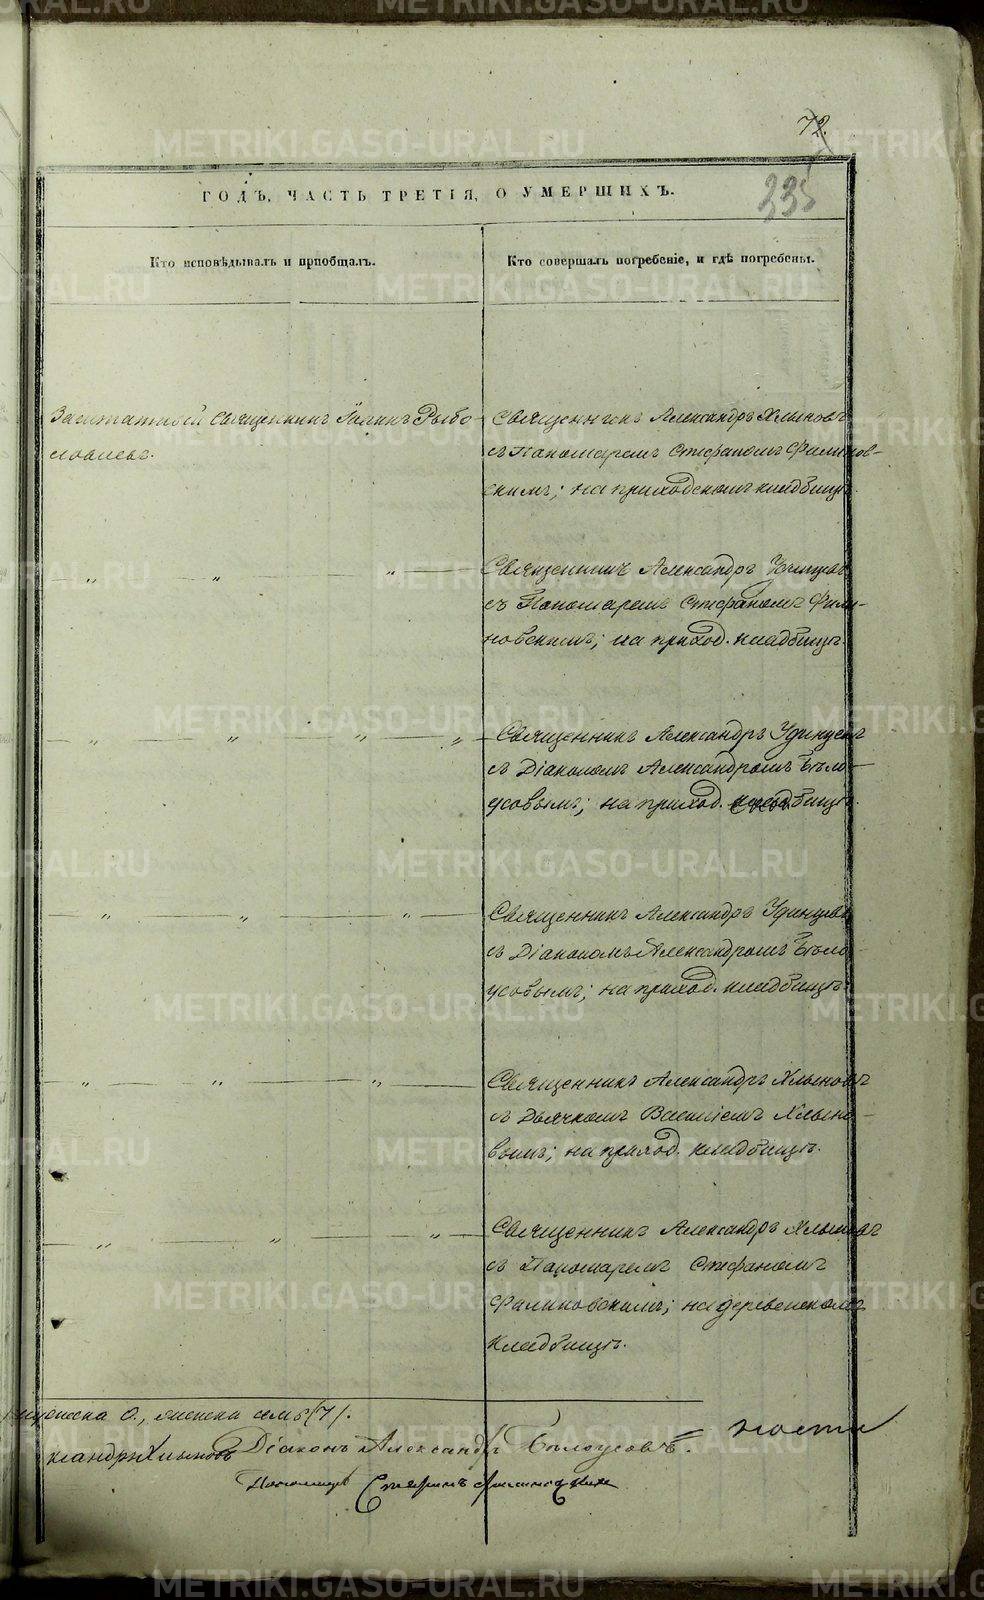 72.
235
ГОДЪ, ЧАСТЬ ТРЕТІЯ, О УМЕРШИХЪ.
Кто исповѣдывалъ и пріобщалъ.
Кто совершалъ погребеніе, и гдѣ погребены.
Заштатный Священникъ Іоаннъ Рыбо-
ловлевъ.
Священникъ Александръ Хлыновъ
съ Пономаремъ Стефаномъ Филинов-
скимъ; на приходскомъ кладбищѣ.
— „ — „ — „ —
Священникъ Александръ Удинцовъ
съ Пономаремъ Стефаномъ Фили-
новскимъ; на приход. кладбищѣ.
— „ — „ — „ — „ —
Священникъ Александръ Удинцовъ
съ Діакономъ Александромъ Бѣло-
усовымъ; на приход. кладбищѣ.
— „ — „ — „ —
Священникъ Александръ Удинцовъ
съ Діакономъ Александромъ Бѣло-
усовымъ; на приход. кладбищѣ.
— „ — „ — „ —
Священникъ Александръ Хлыновъ
съ Дьячкомъ Василіемъ Хлыно-
вымъ; на приход. кладбищѣ.
— „ — „ — „ —
Священникъ Александръ Хлыновъ
съ Пономаремъ Стефаномъ
Филиновскимъ; на деревенскомъ
кладбищѣ.
0., женска семь /7/.
ксандръ Хлыновъ
Діаконъ Александръ Бѣлоусовъ.
Пономарь Стефанъ Филиновскій
METRIKI.GASO-URAL.RU